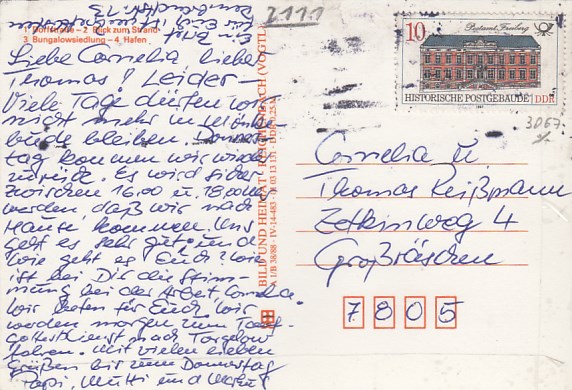 2111
1 Dorfstraße – 2 Blick zum Strand
3 Bungalowsiedlung – 4 Hafen
Liebe Cornelia, lieber
Thomas! Leider
Viele Tage dürfen wir
nicht mehr in Mönke-
bude bleiben. Donners-
tag kommen wir wieder
zurück. Es wird sicher
zwischen 16.00 u. 18.00 Uhr
werden, daß wir nach
Hause kommen. Uns
geht es sehr gut und
wie geht es Euch? Wie
ist bei Dir die Stim-
mung bei der Arbeit, Cornelia.
Wir beten für Euch. Wir
werden morgen zum
gottesdienst nach Torgelow
fahren. Mit vielen lieben
Grüßen bis zum Donnerstag
Papi, Mutti und
BILD UND HEIMAT REICHENBACH (VOGTL
A 1/B 38/88 IV-14-483 01 03 13 131 DDR 0,25 M
10
Postamt Freiberg
HISTORISCHE POSTGEBÄUDE DDR
3067
Cornelia u.
Thomas Reißmann
Zetkinweg 4
Großräschen
7805